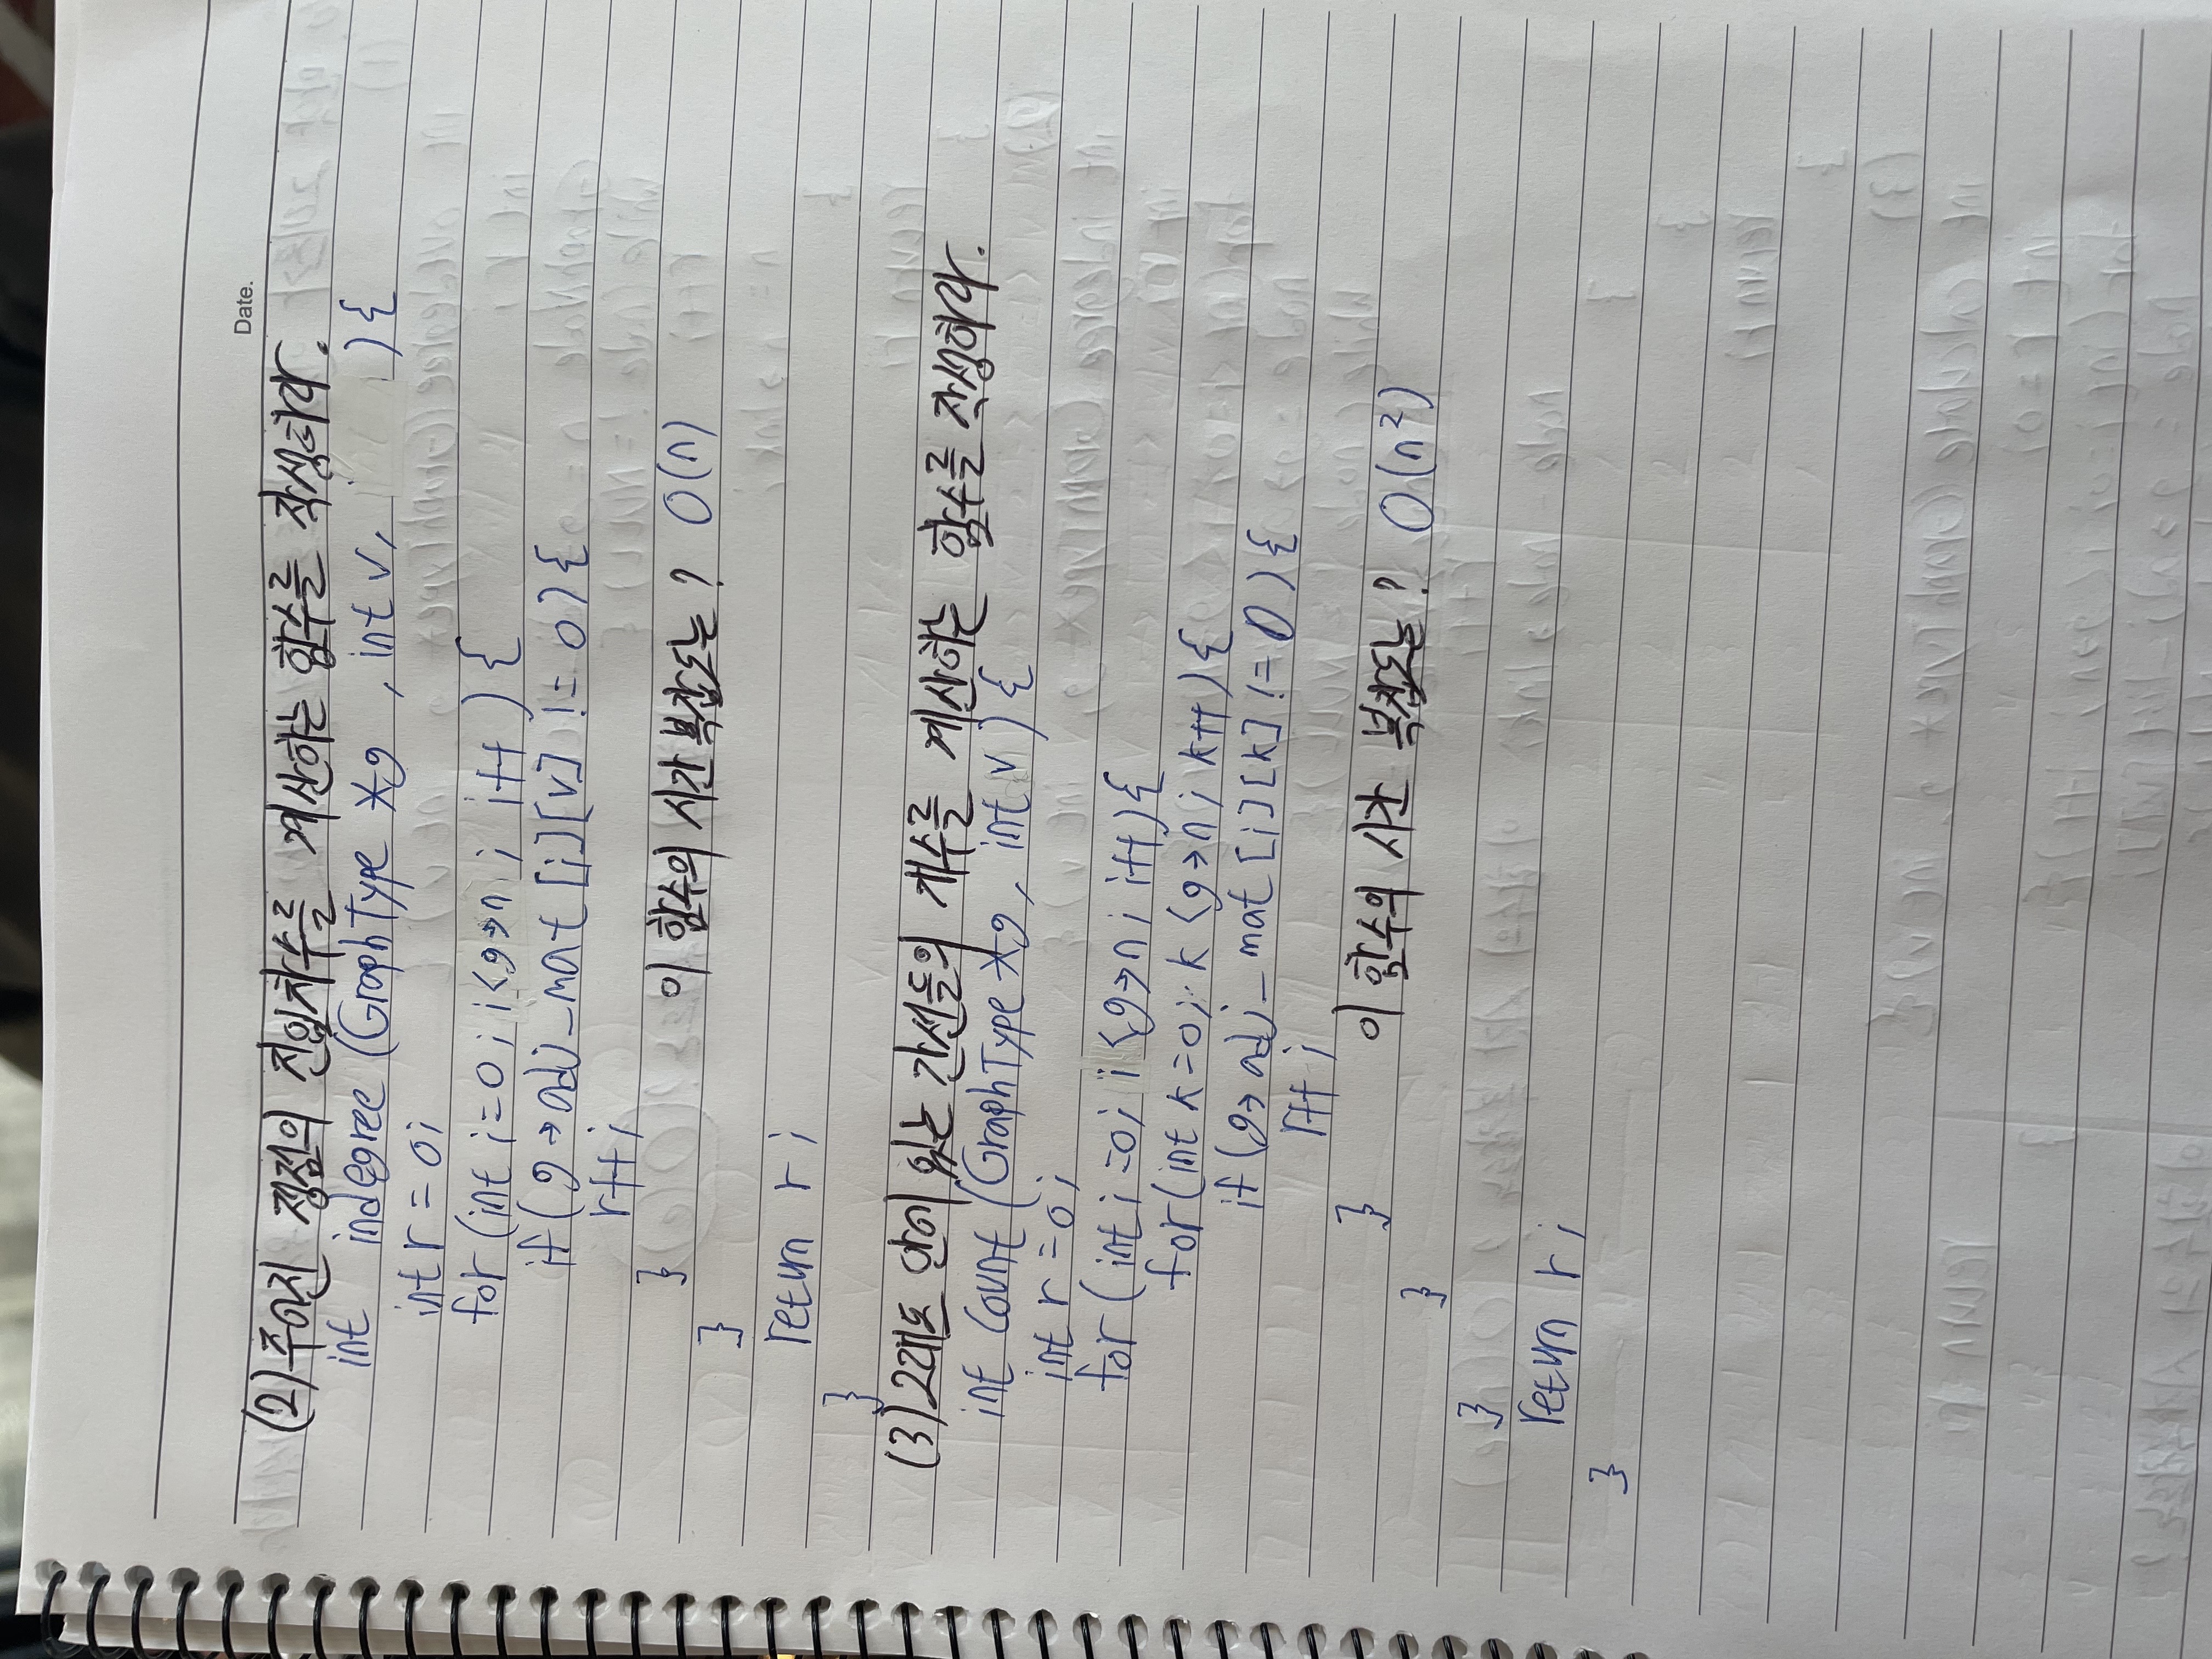 Date.
(2) 주어진 정점의 진입차수를 계산하는 함수를 작성하라.
int indegree (GraphType *g , int v, ) {
int r = 0;
for (int i=0; i<g→n ; i++ ) {
if (g→adj_mat [i][v] != 0) {
r++;
} 이 함수의 시간 복잡도는? O(n)
}
return r ;
}
(3) 그래프 안에 있는 간선들의 개수를 계산하는 함수를 작성하라.
int count (GraphType *g, int v ) {
int r = 0;
for ( int i =0; i <g→n ; i++) {
for (int k =0; k <g→n ; k++) {
if (g→ adj_mat [i][k] != 0 ) {
r++ ;
} 이 함수의 시간 복잡도는? O(n²)
}
}
return r ;
}